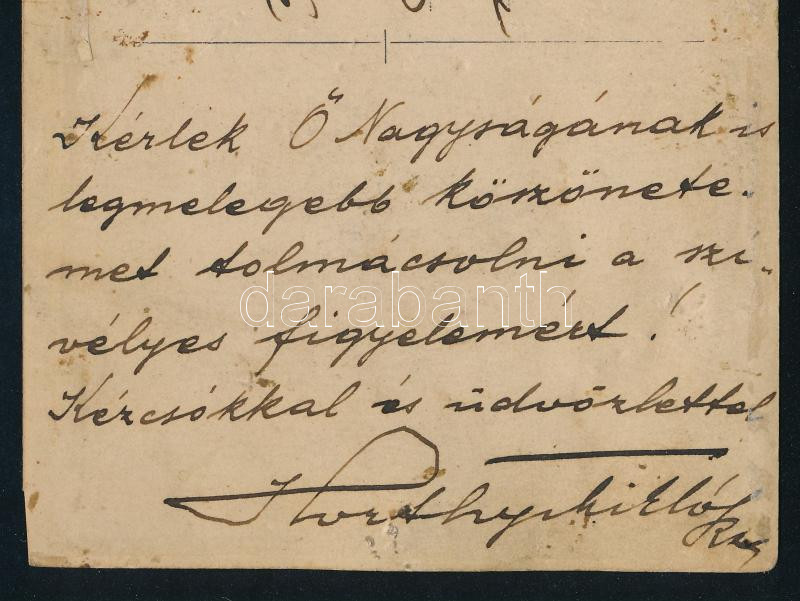 Kérlek Ő Nagyságának is
legmelegebb köszönete-
met tolmácsolni a szi-
vélyes figyelemért!
Kézcsókkal és üdvözlettel
Horthy Miklós
darabanth